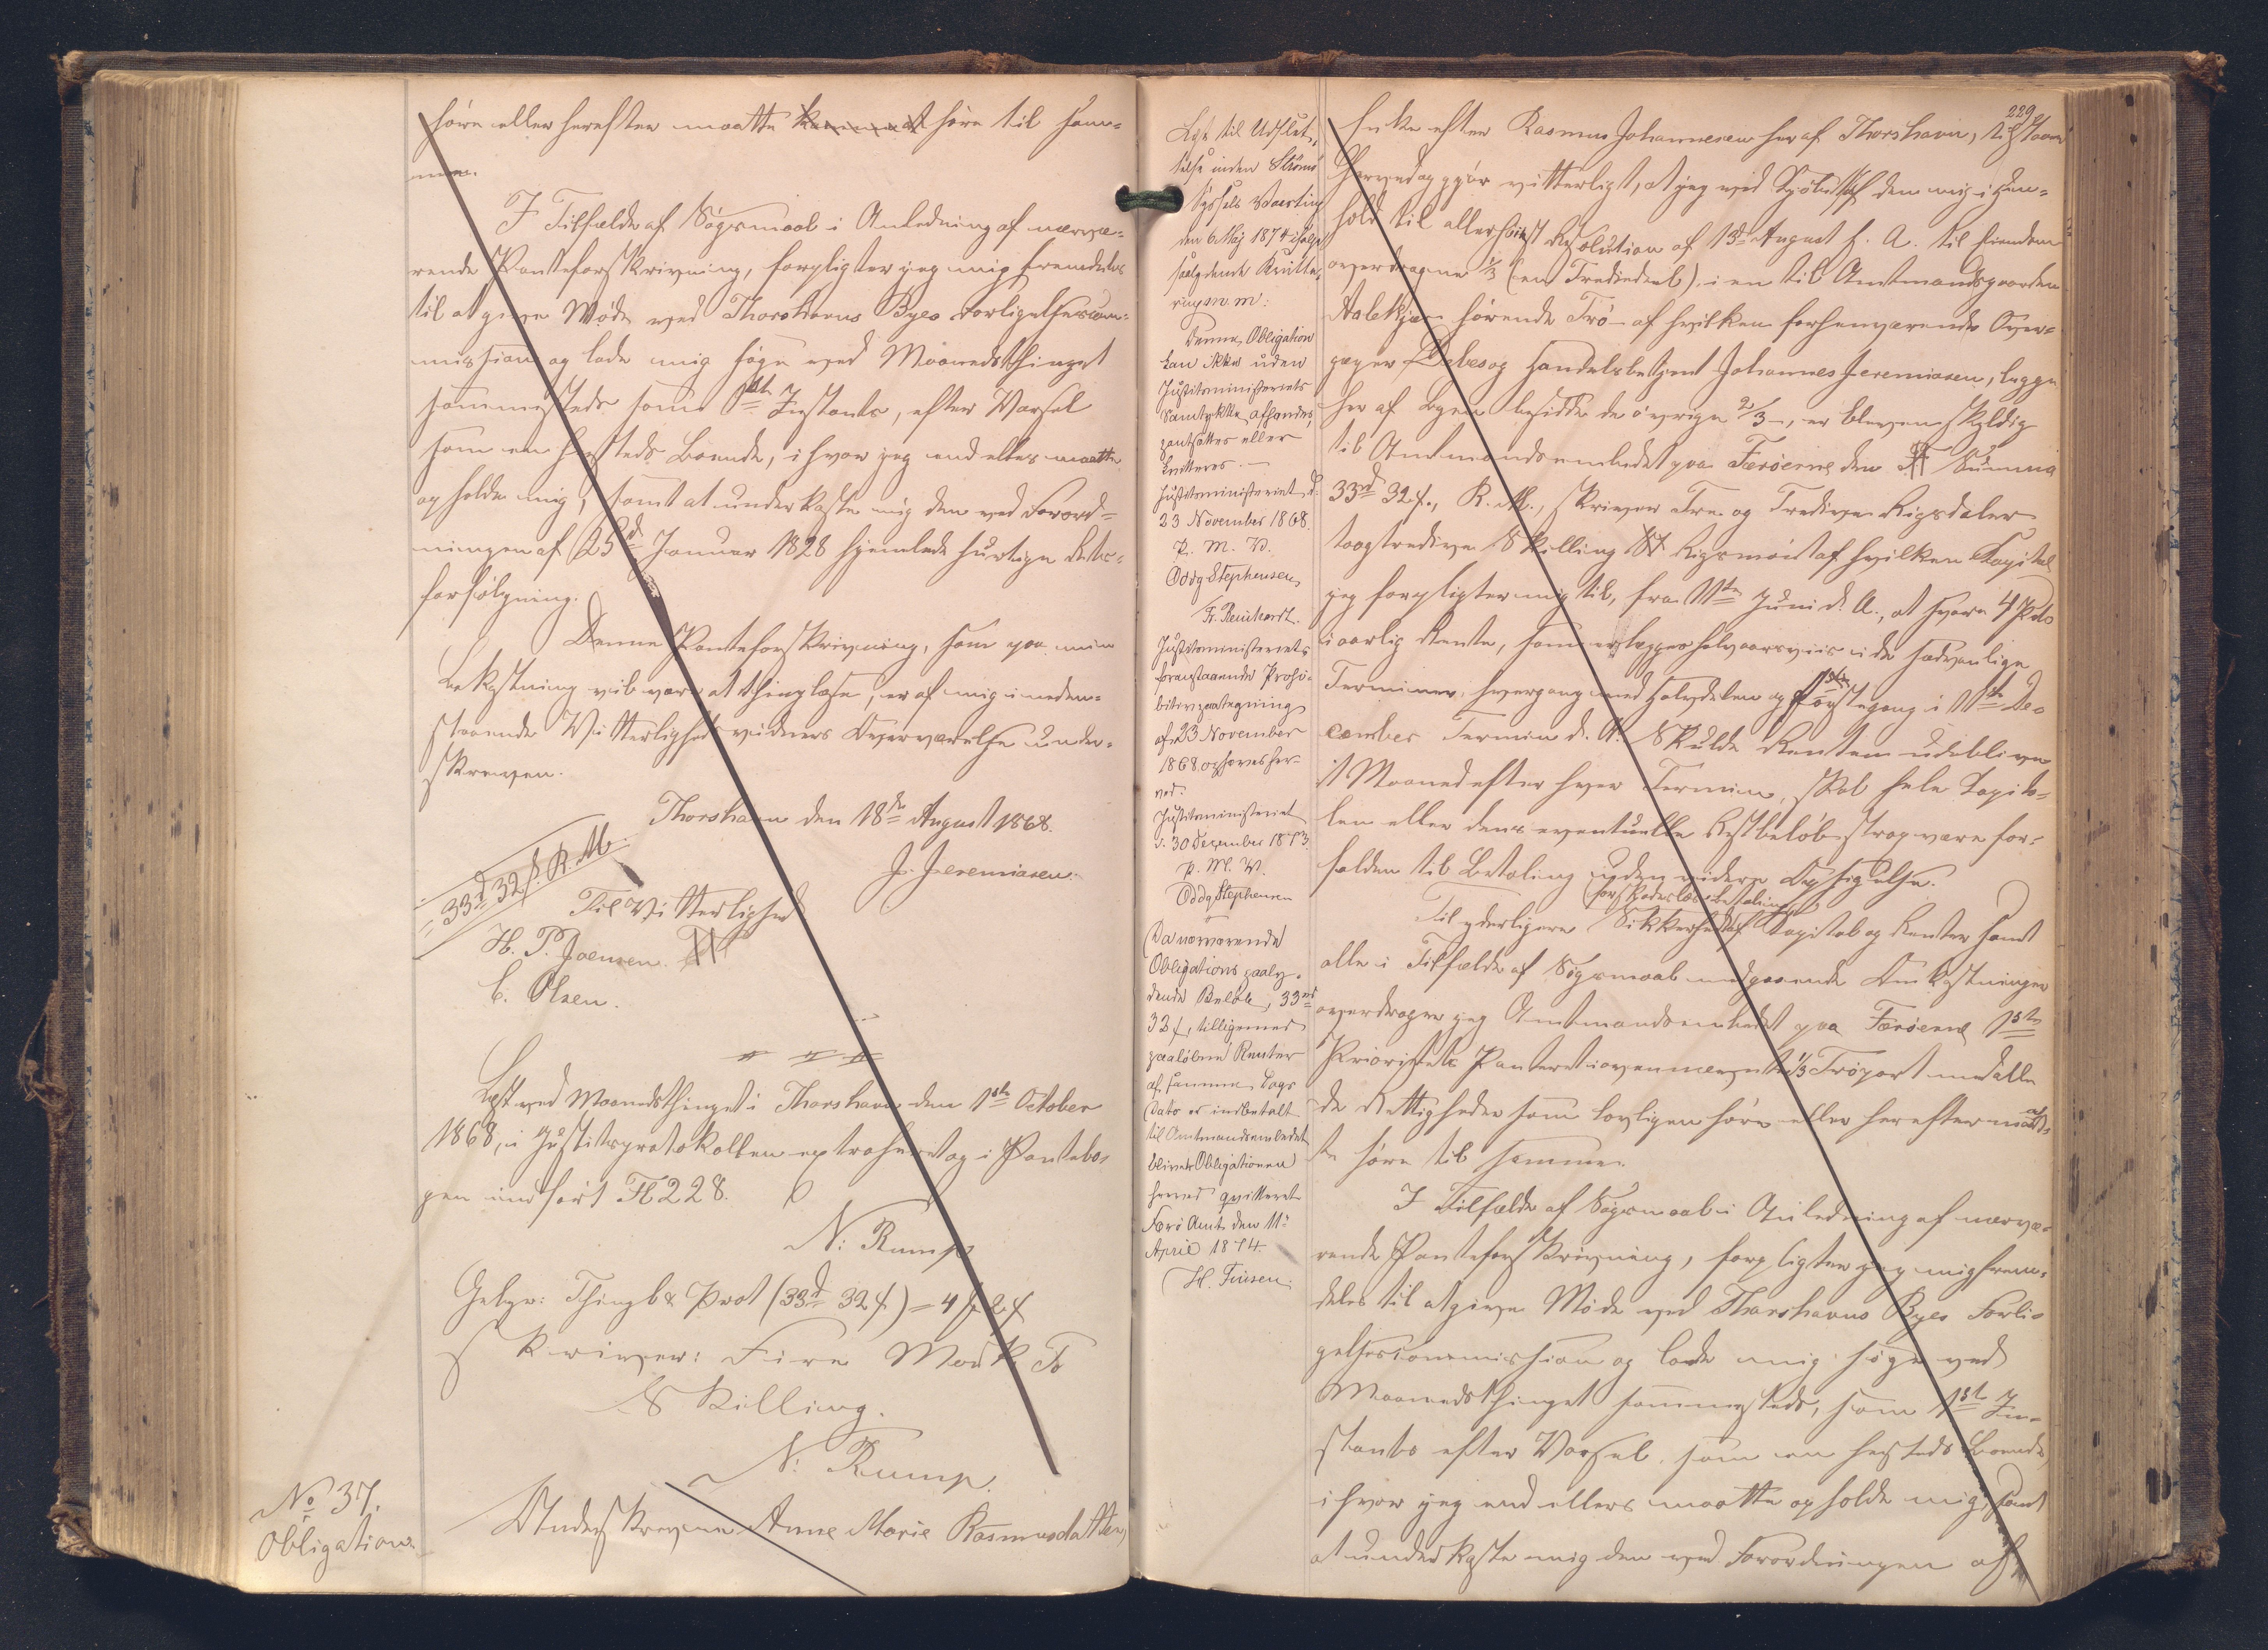 høre eller herefter maatte høre til sam-
me.
I Tilfælde af Søgsmaal i Anledning af nærvæ-
rende Panteforskrivning, forpligter jeg mig fremdeles
til at give Møde ved Thorshavns Byes Forligelsescom-
mission og lade mig søge ved Maanedsthinget
sammesteds som 1ste Instants, efter Varsel
som en hersteds Boende, i hvor jeg end ellers maatte
opholde mig, samt at underkaste mig den ved Forord-
ningen af 25d Januar 1828 hjemlede hurtige Rets-
forfølgning.
Denne Panteforskrivning, som paa min
Bekostning vil være at thinglæse, er af mig i neden-
staaende Vitterlighedsvidners Overværelse under-
skreven.
Thorshavn den 18de August 1868.
J. Jeremiasen.
33rd 32 s. R.M.
Til Vitterlighed
H. P. Joensen.
C. Olsen.
Læst ved Maanedsthinget i Thorshavn den 1ste October
1868, i Justitsprotokollen extraheret og i Pantebo-
gen indført Fl 228.
N: Rump
Gebyr: Thingl & Prot (33rd 32 s) = 4 2 s
skriver: Fire Mark To
Skilling.
N: Rump.
No 37.
Obligation.
Underskrevne Anne Marie Rasmusdatter,
229
Lyst til Udslet-
telse inden Strømø
Syssels Vaarting
den 6 Maj 1874 ifølge
saalydende Kvitte-
ring m.m:
Denne Obligation
kan ikke uden
Justitsministeriets
Samtykke afhændes,
pantsættes eller
kvitteres. —
Justitsministeriet d.
23 November 1868.
P. M. V.
Oddg Stephensen
Fr. Reinhardt.
Justitsministeriets
foranstaaende Prohi-
bitivpaategning
af 23 November
1868 ophæves her-
ved.
Justitsministeriet
d. 30 December 1873.
P. M. V.
Oddg Stephensen
Da nærværende
Obligations paaly-
dende Beløb, 33rd
32 s, tilligemed
paaløbne Renter
af samme Dags
Dato er indbetalt
til Amtmandsembedet
bliver Obligationen
herved qvitteret
Færø Amt den 11te
April 1874.
H. Finsen.
Enke efter Rasmus Johannesen her af Thorshavn, tilstaar
herved og gjør vitterligt, at jeg ved Kjøb af den mig i Hen-
hold til allerhøist Resolution af 13de August f. A. til Eiendom
overdragne 1/3 (en Trediedeel) i en til Amtmandsgaarden
Aalekjær hørende Trø — af hvilken forhenværende Over-
pager Debes og Handelsbetjent Johannes Jeremiasen, begge
her af Byen besidde de øvrige 2/3 —, er bleven skyldig
til Amtmandsembedet paa Færøerne den Summa
33rd 32 s., R.M., skriver Tre og Tredive Rigsdaler
toogtredive Skilling Rigsmønt af hvilken Kapital
jeg forpligter mig til, fra 11te Juni d. A., at svare 4 Pct
i aarlig Rente, som erlægges halvaarsviis i de sædvanlige
Terminer, hvergang med Halvdelen og førstegang i 11te De-
cember Termin d. A. Skulde Renten udeblive
1 Maaned efter hver Termin, skal hele Capita-
len eller dens eventuelle Restbeløb strax være for-
falden til Betaling uden videre Opsigelse.
for skadesløs Betaling
Til yderligere Sikkerhed af Capital og Renter samt
alle i Tilfælde af Søgsmaal medgaaende Omkostninger
overdrager jeg Amtmandsembedet paa Færøerne 1ste
Prioritets Panteret i ovennævnte 1/3 Trøpart med alle
de Rettigheder som lovligen høre eller herefter maat-
te høre til samme.
I Tilfælde af Søgsmaal i Anledning af nærvæ-
rende Panteforskrivning, forpligter jeg mig frem-
deles til at give Møde ved Thorshavns Byes Forli-
gelsescommission og lade mig søge ved
Maanedsthinget sammesteds, som 1ste In-
stants efter Varsel som en hersteds Boende
i hvor jeg end ellers maatte opholde mig, samt
at underkaste mig den ved Forordningen af